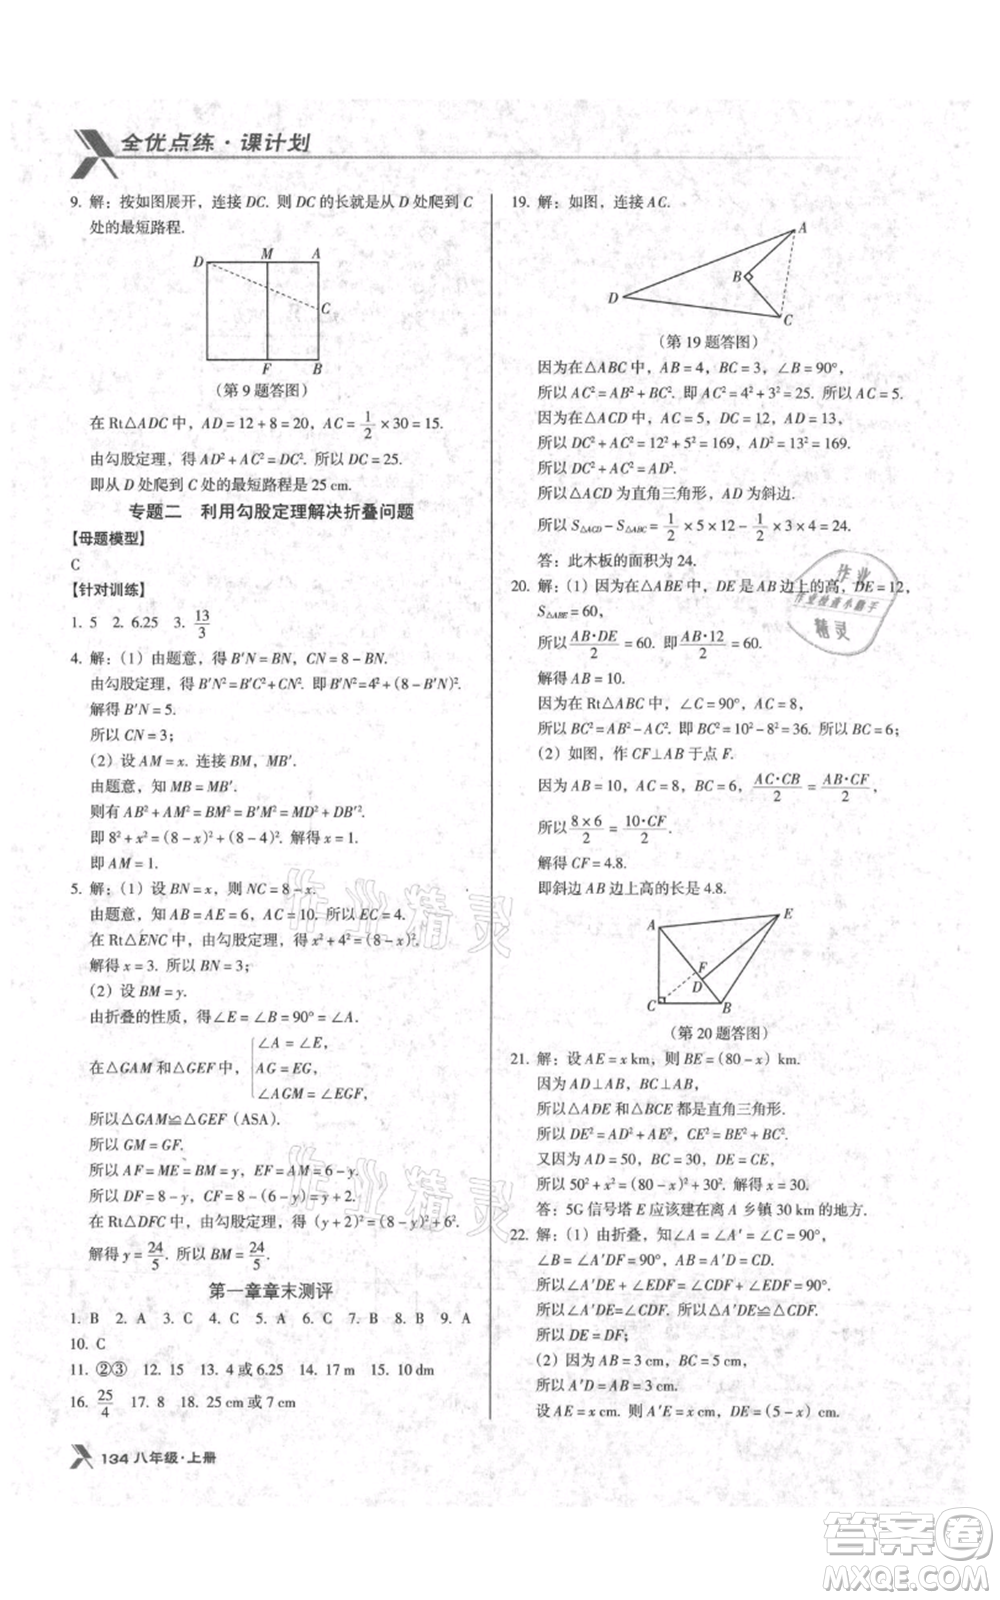 全优点练·课计划
9. 解：按如图展开，连接 DC. 则 DC 的长就是从 D 处爬到 C
处的最短路程.
D M A
C
F B
(第 9 题答图)
在 Rt△ADC 中，AD=12+8=20，AC=1/2×30=15.
由勾股定理，得 AD²+AC²=DC². 所以 DC=25.
即从 D 处爬到 C 处的最短路程是 25 cm.
专题二 利用勾股定理解决折叠问题
【母题模型】
C
【针对训练】
1. 5 2. 6.25 3. 13/3
4. 解：(1) 由题意，得 B′N=BN，CN=8-BN.
由勾股定理，得 B′N²=B′C²+CN². 即 B′N²=4²+(8-B′N)².
解得 B′N=5.
所以 CN=3；
(2) 设 AM=x. 连接 BM，MB′.
由题意，知 MB=MB′.
则有 AB²+AM²=BM²=B′M²=MD²+DB′².
即 8²+x²=(8-x)²+(8-4)². 解得 x=1.
即 AM=1.
5. 解：(1) 设 BN=x，则 NC=8-x.
由题意，得 AB=AE=6，AC=10. 所以 EC=4.
在 Rt△ENC 中，由勾股定理，得 x²+4²=(8-x)².
解得 x=3. 所以 BN=3；
(2) 设 BM=y.
由折叠的性质，得∠E=∠B=90°=∠A.
在△GAM 和△GEF 中，{∠A=∠E，
AG=EG，
∠AGM=∠EGF，
所以△GAM≌△GEF (ASA).
所以 GM=GF.
所以 AF=ME=BM=y，EF=AM=6-y.
所以 DF=8-y，CF=8-(6-y)=y+2.
在 Rt△DFC 中，由勾股定理，得 (y+2)²=(8-y)²+6².
解得 y=24/5. 所以 BM=24/5.
第一章章末测评
1. B 2. A 3. C 4. C 5. A 6. C 7. B 8. B 9. A
10. C
11. ②③ 12. 15 13. 4 或 6.25 14. 17 m 15. 10 dm
16. 25/4 17. 8 18. 25 cm 或 7 cm
134 八年级·上册
19. 解：如图，连接 AC.
A
B
D
C
(第 19 题答图)
因为在△ABC 中，AB=4，BC=3，∠B=90°，
所以 AC²=AB²+BC². 即 AC²=4²+3²=25. 所以 AC=5.
因为在△ACD 中，AC=5，DC=12，AD=13，
所以 DC²+AC²=12²+5²=169，AD²=13²=169.
所以 DC²+AC²=AD².
所以△ACD 为直角三角形，AD 为斜边.
所以 S△ACD-S△ABC=1/2×5×12-1/2×3×4=24.
答：此木板的面积为 24.
20. 解：(1) 因为在△ABE 中，DE 是 AB 边上的高，DE=12，
S△ABE=60，
所以 AB·DE/2=60. 即 AB·12/2=60.
解得 AB=10.
因为在 Rt△ABC 中，∠C=90°，AC=8，
所以 BC²=AB²-AC². 即 BC²=10²-8²=36. 所以 BC=6；
(2) 如图，作 CF⊥AB 于点 F.
因为 AB=10，AC=8，BC=6，AC·CB/2=AB·CF/2，
所以 8×6/2=10·CF/2.
解得 CF=4.8.
即斜边 AB 边上高的长是 4.8.
E
A
F
D
C B
(第 20 题答图)
21. 解：设 AE=x km，则 BE=(80-x) km.
因为 AD⊥AB，BC⊥AB，
所以△ADE 和△BCE 都是直角三角形.
所以 DE²=AD²+AE²，CE²=BE²+BC².
又因为 AD=50，BC=30，DE=CE，
所以 50²+x²=(80-x)²+30². 解得 x=30.
答：5G 信号塔 E 应该建在离 A 乡镇 30 km 的地方.
22. 解：(1) 由折叠，知∠A=∠A′=∠C=90°，
∠B=∠A′DF=90°，A′D=AB=CD.
所以∠A′DE+∠EDF=∠CDF+∠EDF=90°.
所以∠A′DE=∠CDF. 所以△A′DE≌△CDF.
所以 DE=DF；
(2) 因为 CD=AB=3 cm，
所以 A′D=AB=3 cm.
设 AE=x cm. 则 A′E=x cm，DE=(5-x) cm.
作业
作业检查小助手
精灵
作业精灵
作业精灵
答案圈
MXQE.COM